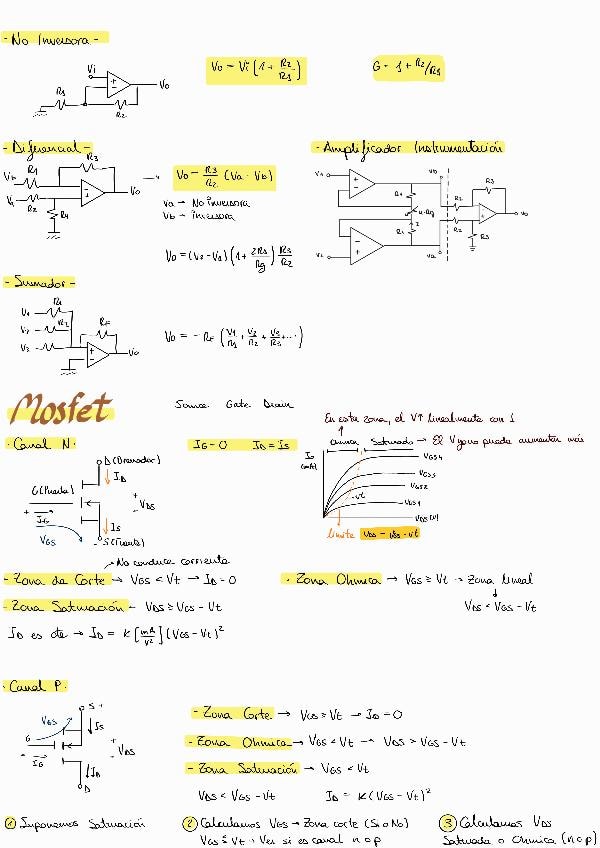 - No Inversora -
Vi
Vo
R1
R2
Vo = Vi (1 + R2/R1)
G = 1 + R2/R1
- Diferencial -
R3
R1
Vb
Va
R2
R4
Vo
Vo = R3/R2 (Va - Vb)
Va → No inversora
Vb → inversora
Vo = (V2 - V1) (1 + 2R1/Rg) R3/R2
- Amplificador Instrumentación
R3
R2
R2
R1
R1
R3
Vo
- Sumador -
R1
V1
V2
R2
V3
RF
Vo
Vo = - RF (V1/R1 + V2/R2 + V3/R3 + ...)
Mosfet
Source Gate Drain
En esta zona, el V↑ linealmente con I
- Canal N -
IG = 0 ID = IS
Ohmica Saturado → El V gono puede aumentar más
D (Drenador)
ID
G (Puerta)
IG
VDS
VGS
IS
S (Fuente)
ID
VGS4
VGS3
VGS2
VGS1
VDS (V)
-Vt
limite VDS = VGS - Vt
→ No conduce corriente
- Zona de Corte → VGS < Vt → ID = 0
- Zona Ohmica → VGS ≥ Vt → Zona lineal
VDS < VGS - Vt
- Zona Saturación - VDS ≥ VGS - Vt
ID es cte → ID = K [mA/V²] (VGS - Vt)²
- Canal P -
S +
VGS
IS
G
IG
VDS
ID
D
- Zona Corte → VGS ≥ Vt → ID = 0
- Zona Ohmica → VGS < Vt → VDS > VGS - Vt
- Zona Saturación → VGS < Vt
VDS < VGS - Vt ID = K (VGS - Vt)²
1 Suponemos Saturación
2 Calculamos VGS → Zona corte (Si o No)
VGS ≤ Vt → Ver si es canal n o p
3 Calculamos VDS
Saturada o Ohmica (n o p)